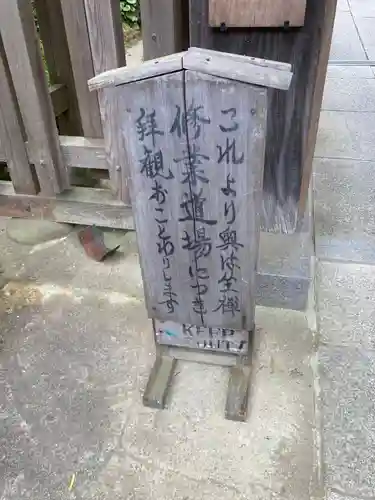 これより奥は坐禅
修業道場につき
拝観おことわりします
KEEP
OUT!